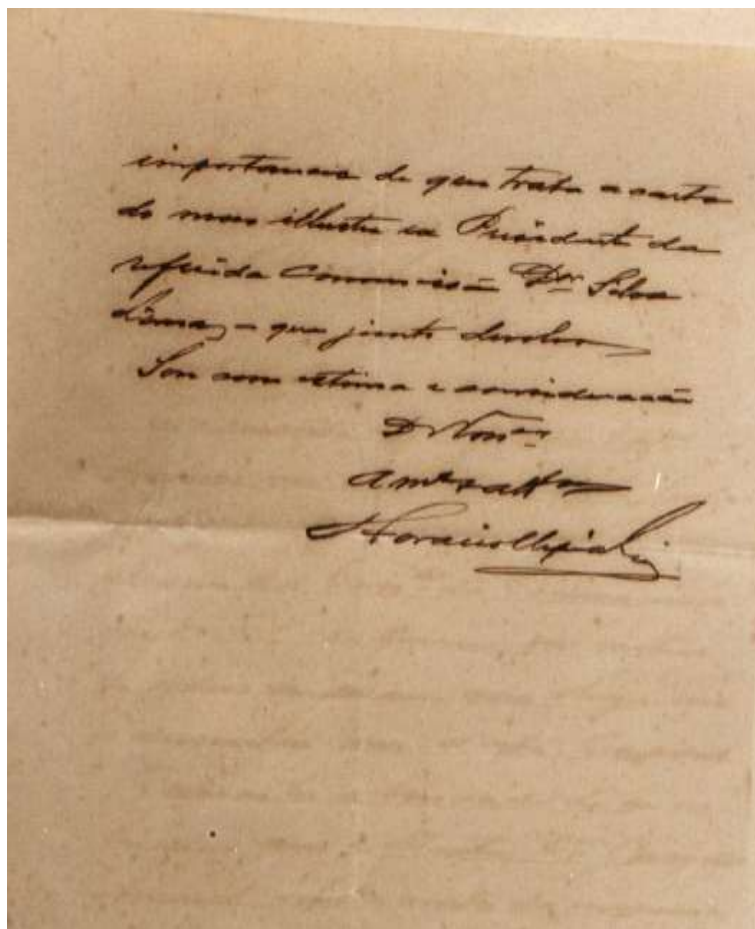 importancia de que trata a carta
do nosso illustre ex Presidente da
referida Commissão Dr Silva
Lima, e que junto devolvo
Sou com estima e consideração
De Vossa
Amo e
Horacio